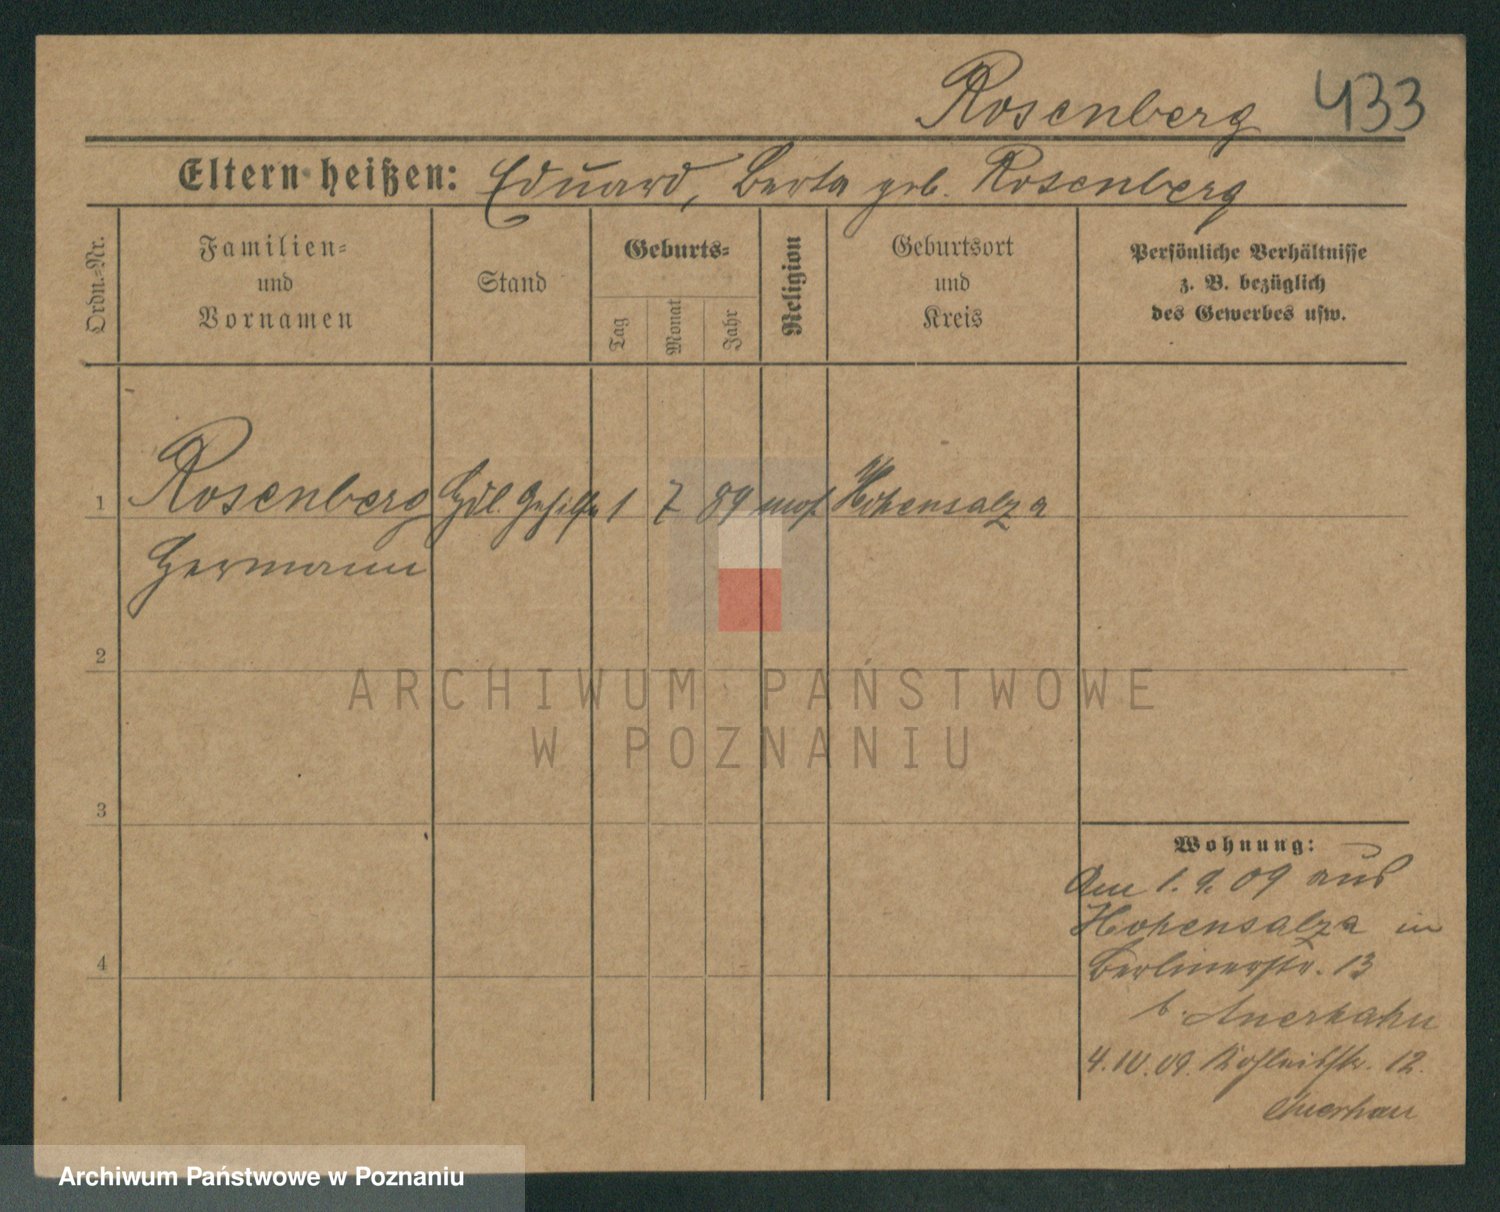 Rosenberg 433
Eltern heißen: Eduard, Berta geb. Rosenberg
Ordn.-Nr.
Familien-
und
Vornamen
Stand
Geburts-
Tag
Monat
Jahr
Religion
Geburtsort
und
Kreis
Persönliche Verhältnisse
z. B. bezüglich
des Gewerbes usw.
1 Rosenberg Hdl. Gehilfe 1 7 89 mos. Hohensalza
Hermann
2
3
4
ARCHIWUM PAŃSTWOWE
W POZNANIU
Wohnung:
Am 1. 9. 09 aus
Hohensalza in
Berlinerstr. 13
b.
4. 09. 12.
Archiwum Państwowe w Poznaniu